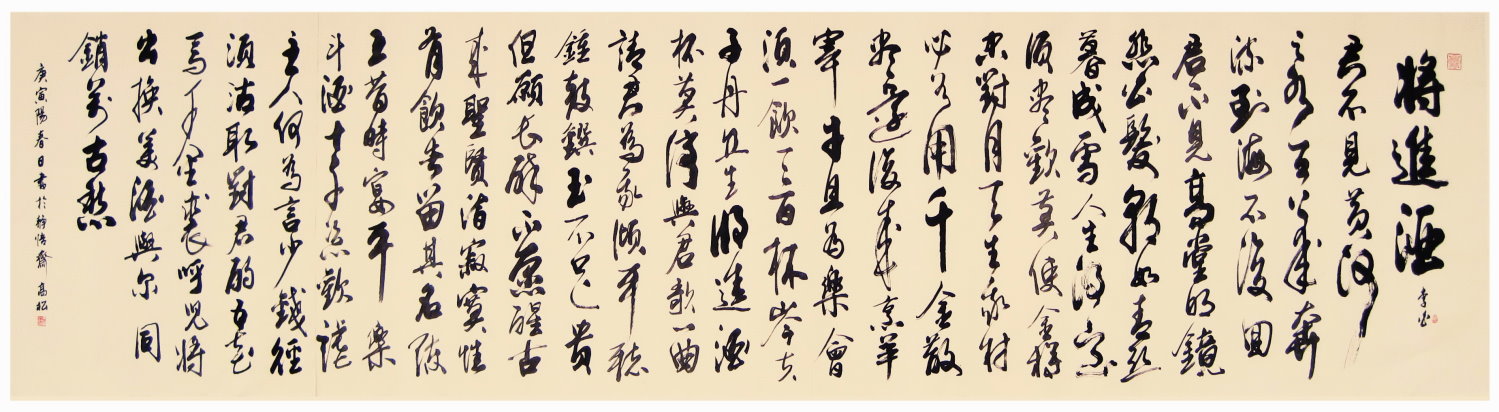 將進酒
李白
君不見黃河
之水天上來奔
流到海不復回
君不見高堂明鏡
悲白髮朝如青絲
暮成雪人生得意
須盡歡莫使金樽
空對月天生我材
必有用千金散
盡還復來烹羊
宰牛且為樂會
須一飲三百杯岑夫
子丹丘生將進酒
杯莫停與君歌一曲
請君為我傾耳聽
鐘鼓饌玉不足貴
但願長醉不願醒古
來聖賢皆寂寞惟
有飲者留其名陳
王昔時宴平樂
斗酒十千恣歡謔
主人何為言少錢徑
須沽取對君酌五花
馬千金裘呼兒將
出換美酒與爾同
銷萬古愁
庚寅陽春日書於靜悟齋 高松